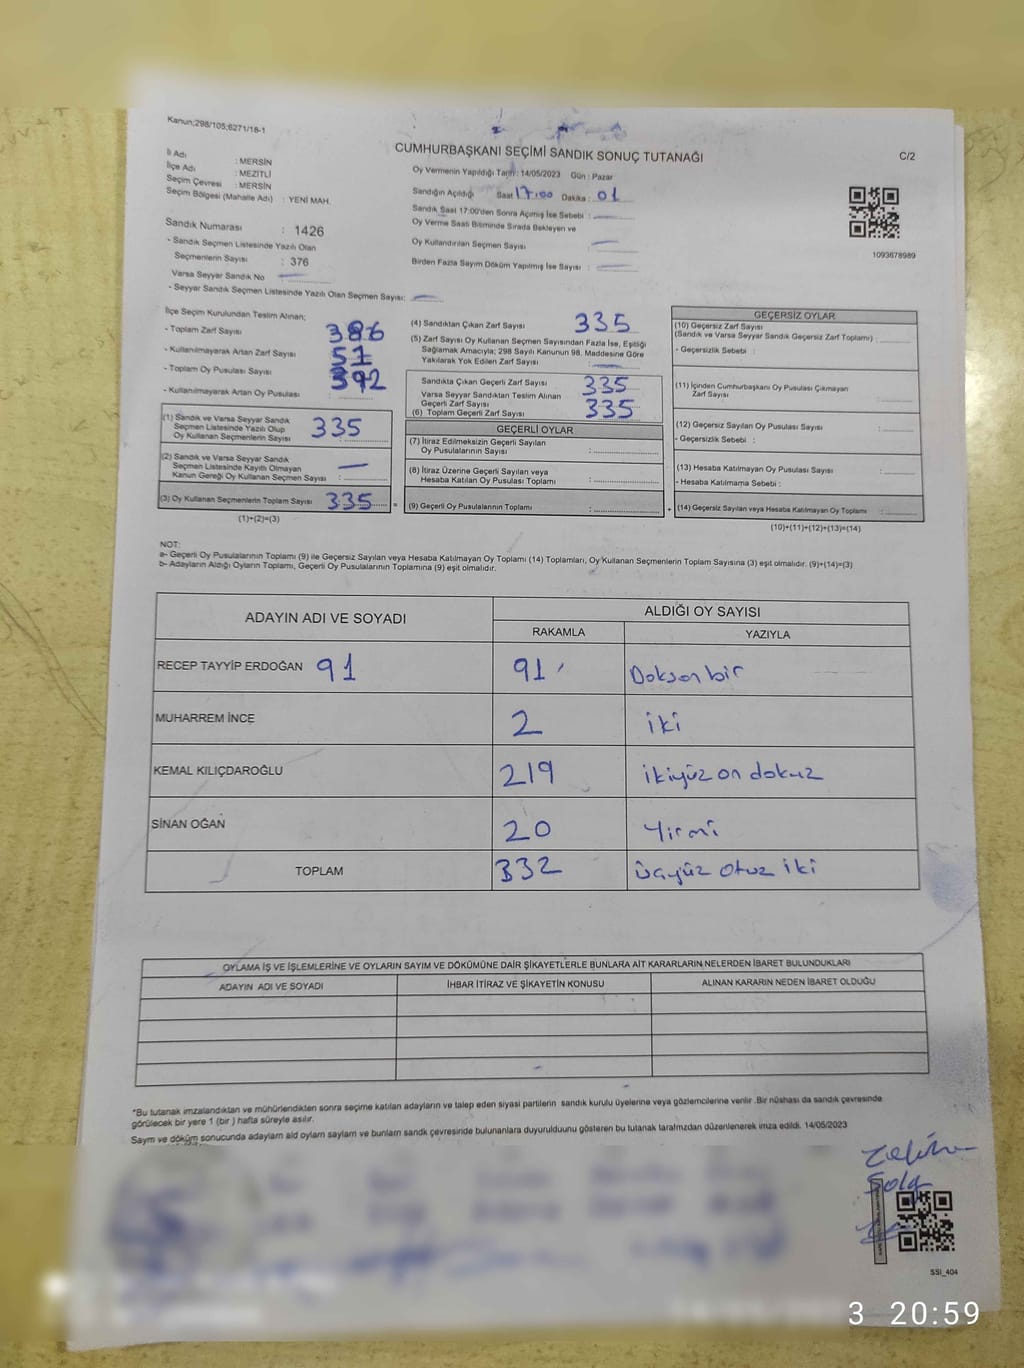 Kanun;298/105;6271/18-1
CUMHURBAŞKANI SEÇİMİ SANDIK SONUÇ TUTANAĞI
C/2
İl Adı : MERSİN
İlçe Adı : MEZİTLİ
Seçim Çevresi : MERSİN
Seçim Bölgesi (Mahalle Adı) : YENİ MAH.
Sandık Numarası : 1426
- Sandık Seçmen Listesinde Yazılı Olan
Seçmenlerin Sayısı : 376
Varsa Seyyar Sandık No
- Seyyar Sandık Seçmen Listesinde Yazılı Olan Seçmen Sayısı:
Oy Vermenin Yapıldığı Tarih: 14/05/2023 Gün : Pazar
Sandığın Açıldığı Saat 17:00 Dakika : 01
Sandık Saat 17:00'den Sonra Açılmış İse Sebebi :
Oy Verme Saati Bitiminde Sırada Bekleyen ve
Oy Kullandırılan Seçmen Sayısı
Birden Fazla Sayım Döküm Yapılmış İse Sayısı :
1093678989
İlçe Seçim Kurulundan Teslim Alınan;
- Toplam Zarf Sayısı 386
- Kullanılmayarak Artan Zarf Sayısı 51
- Toplam Oy Pusulası Sayısı 392
- Kullanılmayarak Artan Oy Pusulası :
(1) Sandık ve Varsa Seyyar Sandık
Seçmen Listesinde Yazılı Olup
Oy Kullanan Seçmenlerin Sayısı : 335
(2) Sandık ve Varsa Seyyar Sandık
Seçmen Listesinde Kayıtlı Olmayan
Kanun Gereği Oy Kullanan Seçmen Sayısı : —
(3) Oy Kullanan Seçmenlerin Toplam Sayısı 335 =
(1)+(2)=(3)
(4) Sandıktan Çıkan Zarf Sayısı 335
(5) Zarf Sayısı Oy Kullanan Seçmen Sayısından Fazla İse, Eşitliği
Sağlamak Amacıyla; 298 Sayılı Kanunun 98. Maddesine Göre
Yakılarak Yok Edilen Zarf Sayısı :
Sandıkta Çıkan Geçerli Zarf Sayısı 335
Varsa Seyyar Sandıktan Teslim Alınan
Geçerli Zarf Sayısı
(6) Toplam Geçerli Zarf Sayısı 335
GEÇERLİ OYLAR
(7) İtiraz Edilmeksizin Geçerli Sayılan
Oy Pusulalarının Sayısı :
(8) İtiraz Üzerine Geçerli Sayılan veya
Hesaba Katılan Oy Pusulası Toplamı :
(9) Geçerli Oy Pusulalarının Toplamı : +
GEÇERSİZ OYLAR
(10) Geçersiz Zarf Sayısı
(Sandık ve Varsa Seyyar Sandık Geçersiz Zarf Toplamı) :
- Geçersizlik Sebebi :
(11) İçinden Cumhurbaşkanı Oy Pusulası Çıkmayan
Zarf Sayısı :
(12) Geçersiz Sayılan Oy Pusulası Sayısı :
- Geçersizlik Sebebi :
(13) Hesaba Katılmayan Oy Pusulası Sayısı :
- Hesaba Katılmama Sebebi :
(14) Geçersiz Sayılan veya Hesaba Katılmayan Oy Toplamı :
(10)+(11)+(12)+(13)=(14)
NOT:
a- Geçerli Oy Pusulalarının Toplamı (9) ile Geçersiz Sayılan veya Hesaba Katılmayan Oy Toplamı (14) Toplamları, Oy Kullanan Seçmenlerin Toplam Sayısına (3) eşit olmalıdır. (9)+(14)=(3)
b- Adayların Aldığı Oyların Toplamı, Geçerli Oy Pusulalarının Toplamına (9) eşit olmalıdır.
ADAYIN ADI VE SOYADI ALDIĞI OY SAYISI
RAKAMLA YAZIYLA
RECEP TAYYİP ERDOĞAN 91 91 Doksan bir
MUHARREM İNCE 2 iki
KEMAL KILIÇDAROĞLU 219 ikiyüz on dokuz
SİNAN OĞAN 20 Yirmi
TOPLAM 332 üçyüz otuz iki
OYLAMA İŞ VE İŞLEMLERİNE VE OYLARIN SAYIM VE DÖKÜMÜNE DAİR ŞİKAYETLERLE BUNLARA AİT KARARLARIN NELERDEN İBARET BULUNDUKLARI
ADAYIN ADI VE SOYADI İHBAR İTİRAZ VE ŞİKAYETİN KONUSU ALINAN KARARIN NEDEN İBARET OLDUĞU
*Bu tutanak imzalandıktan ve mühürlendikten sonra seçime katılan adayların ve talep eden siyasi partilerin sandık kurulu üyelerine veya gözlemcilerine verilir .Bir nüshası da sandık çevresinde
görülecek bir yere 1 (bir ) hafta süreyle asılır.
Sayım ve döküm sonucunda adayların ald oyların sayların ve bunların sandk çevresinde bulunanlara duyurulduunu gösteren bu tutanak tarafmzdan düzenlenerek imza edildi. 14/05/2023
SSI_404
3 20:59